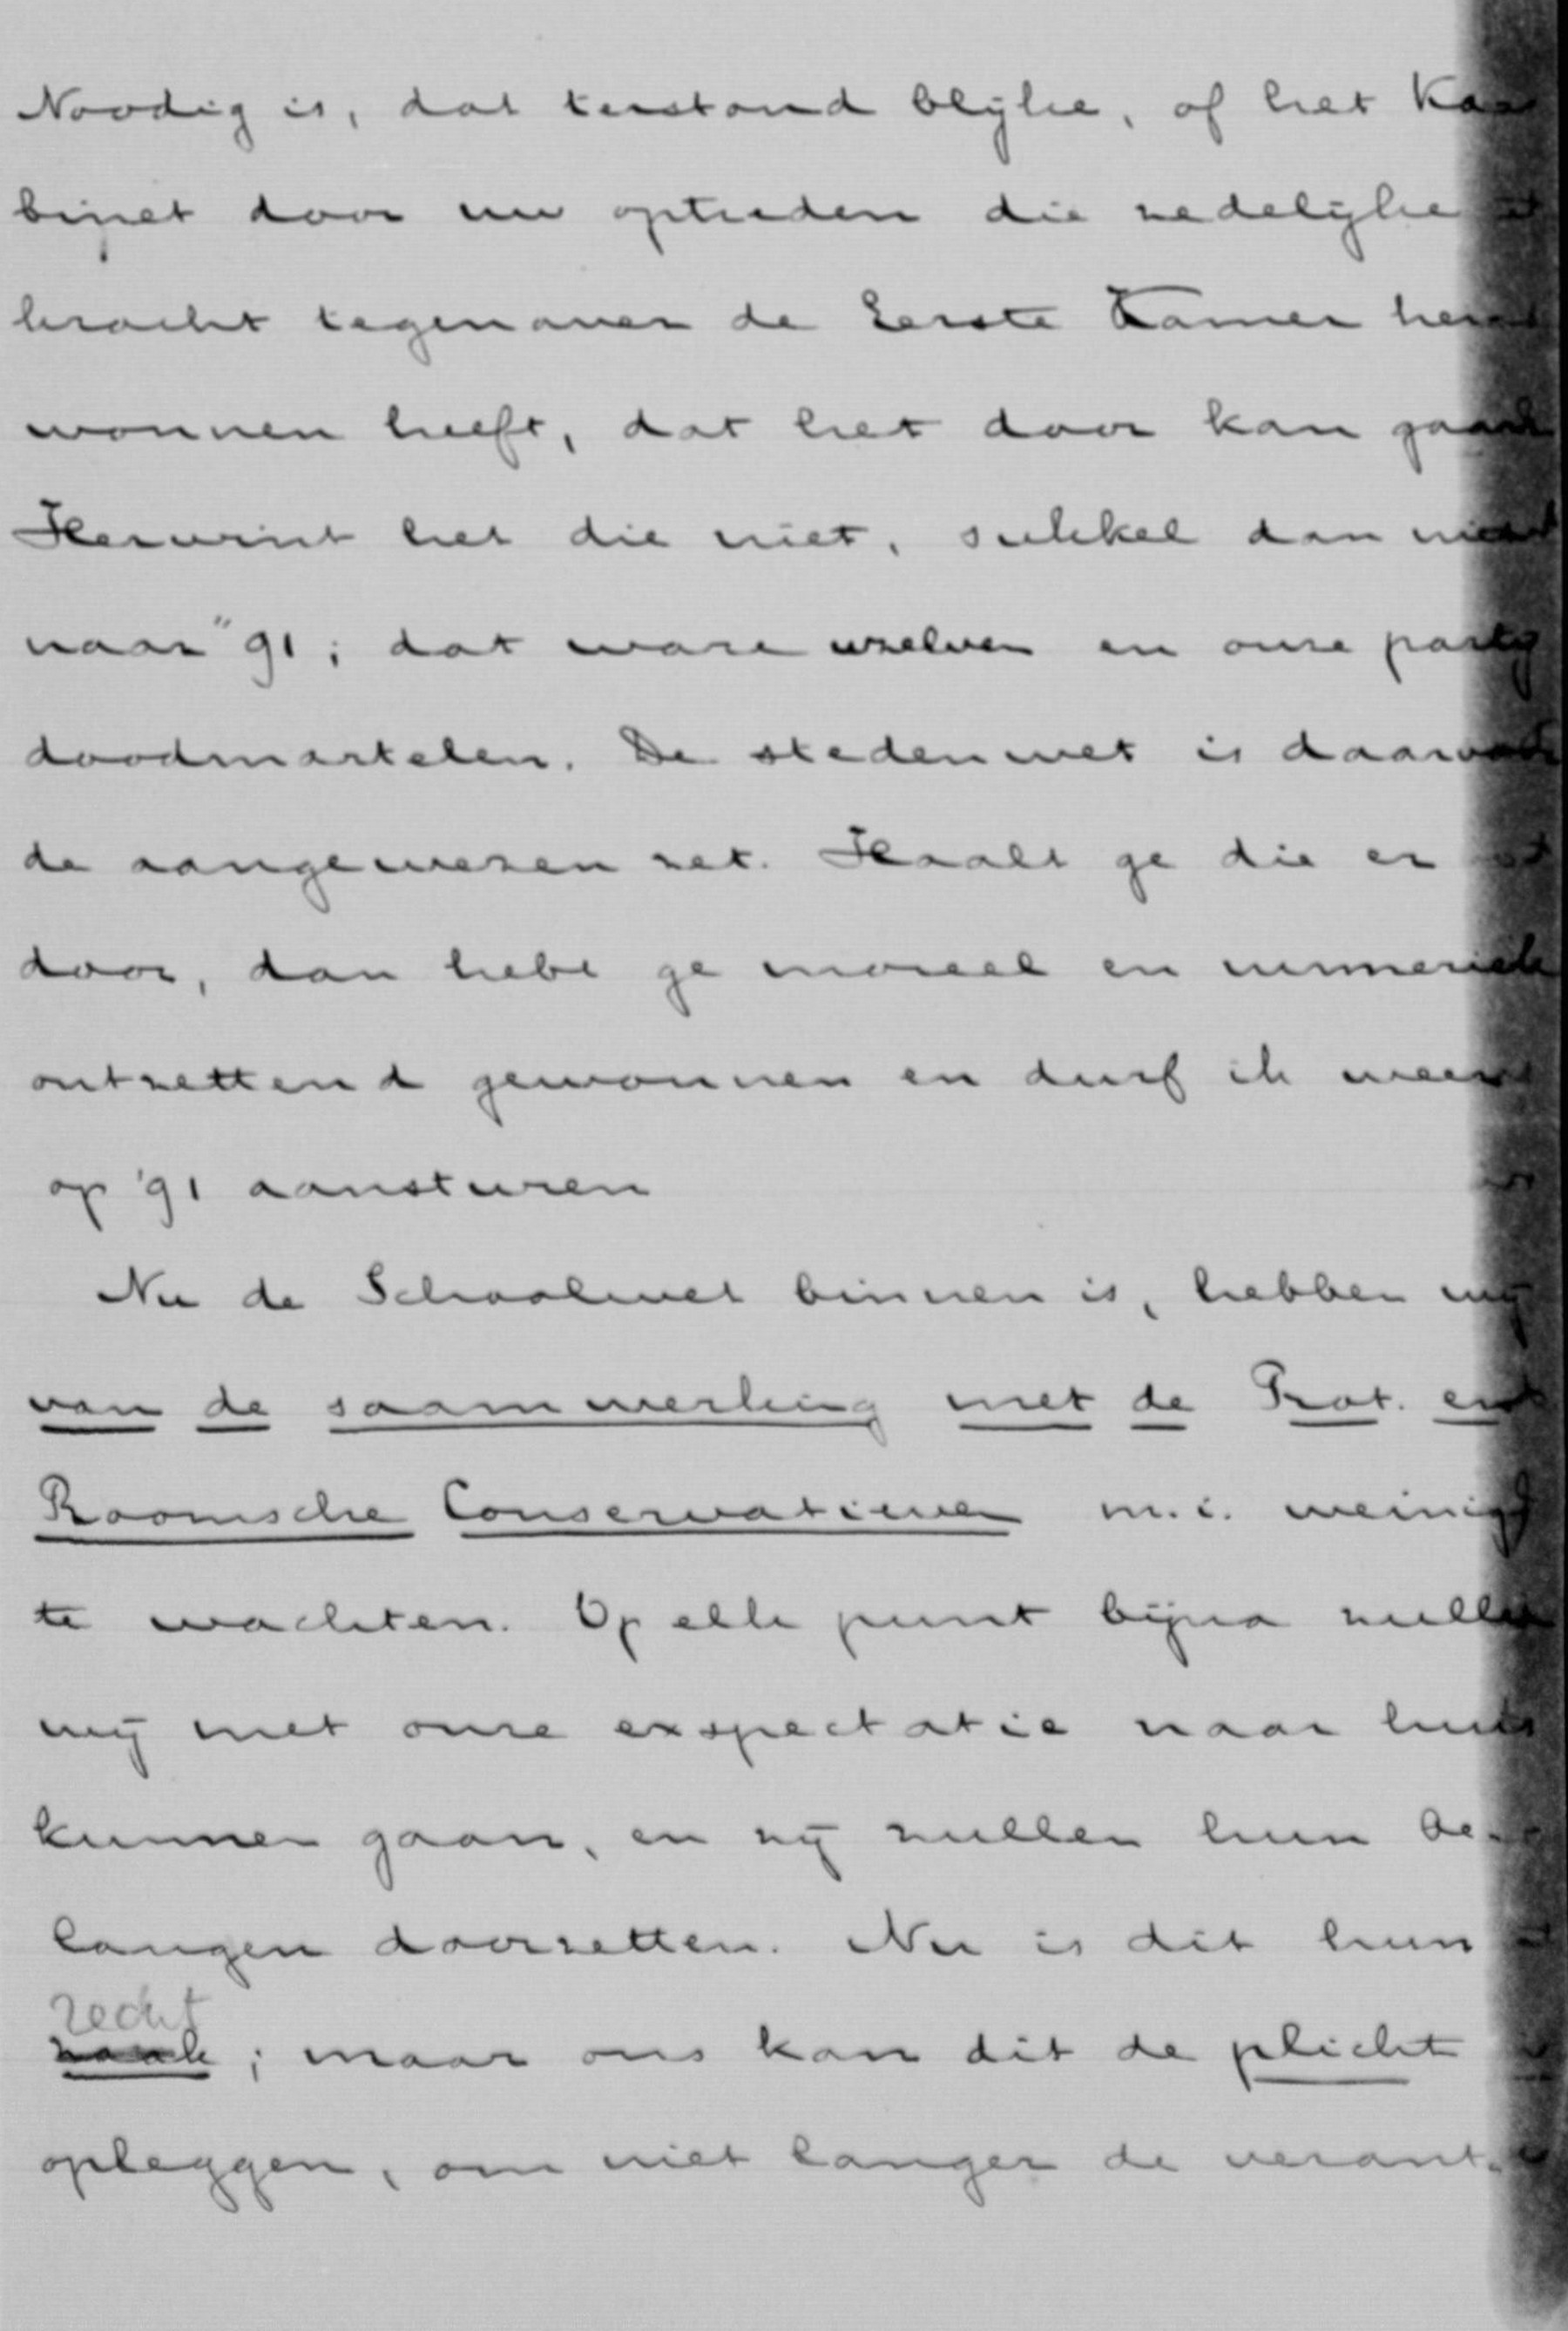 Noodig is, dat terstond blijke, of het Ka-
binet door uw optreden die zedelijke
kracht tegenover de Eerste Kamer her-
wonnen heeft, dat het door kan gaan
Herwint het die niet, sukkel dan niet
naar "91; dat ware uzelven en onze partij
doodmartelen. De stedenwet is daarvoor
de aangewezen zet. Haalt ge die er
door, dan hebt ge moreel en numeriek
ontzettend gewonnen en durf ik weer
op '91 aansturen
Nu de Schoolwet binnen is, hebben wij
van de saamwerking met de Prot. en
Roomsche Conservatieven m.i. weinig
te wachten. Op elk punt bijna zullen
wij met onze exspectatie naar huis
kunnen gaan, en zij zullen hun be-
langen doorzetten. Nu is dit hun
recht
zaak; maar ons kan dit de plicht
opleggen, om niet langer de verant-